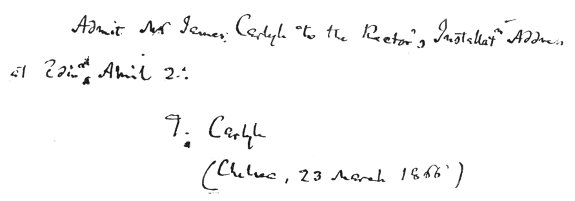 Admit Mr James Carlyle to the Rector's Installatn Address
at Edinr April 2.
T. Carlyle
(Chelsea, 23 March 1866)